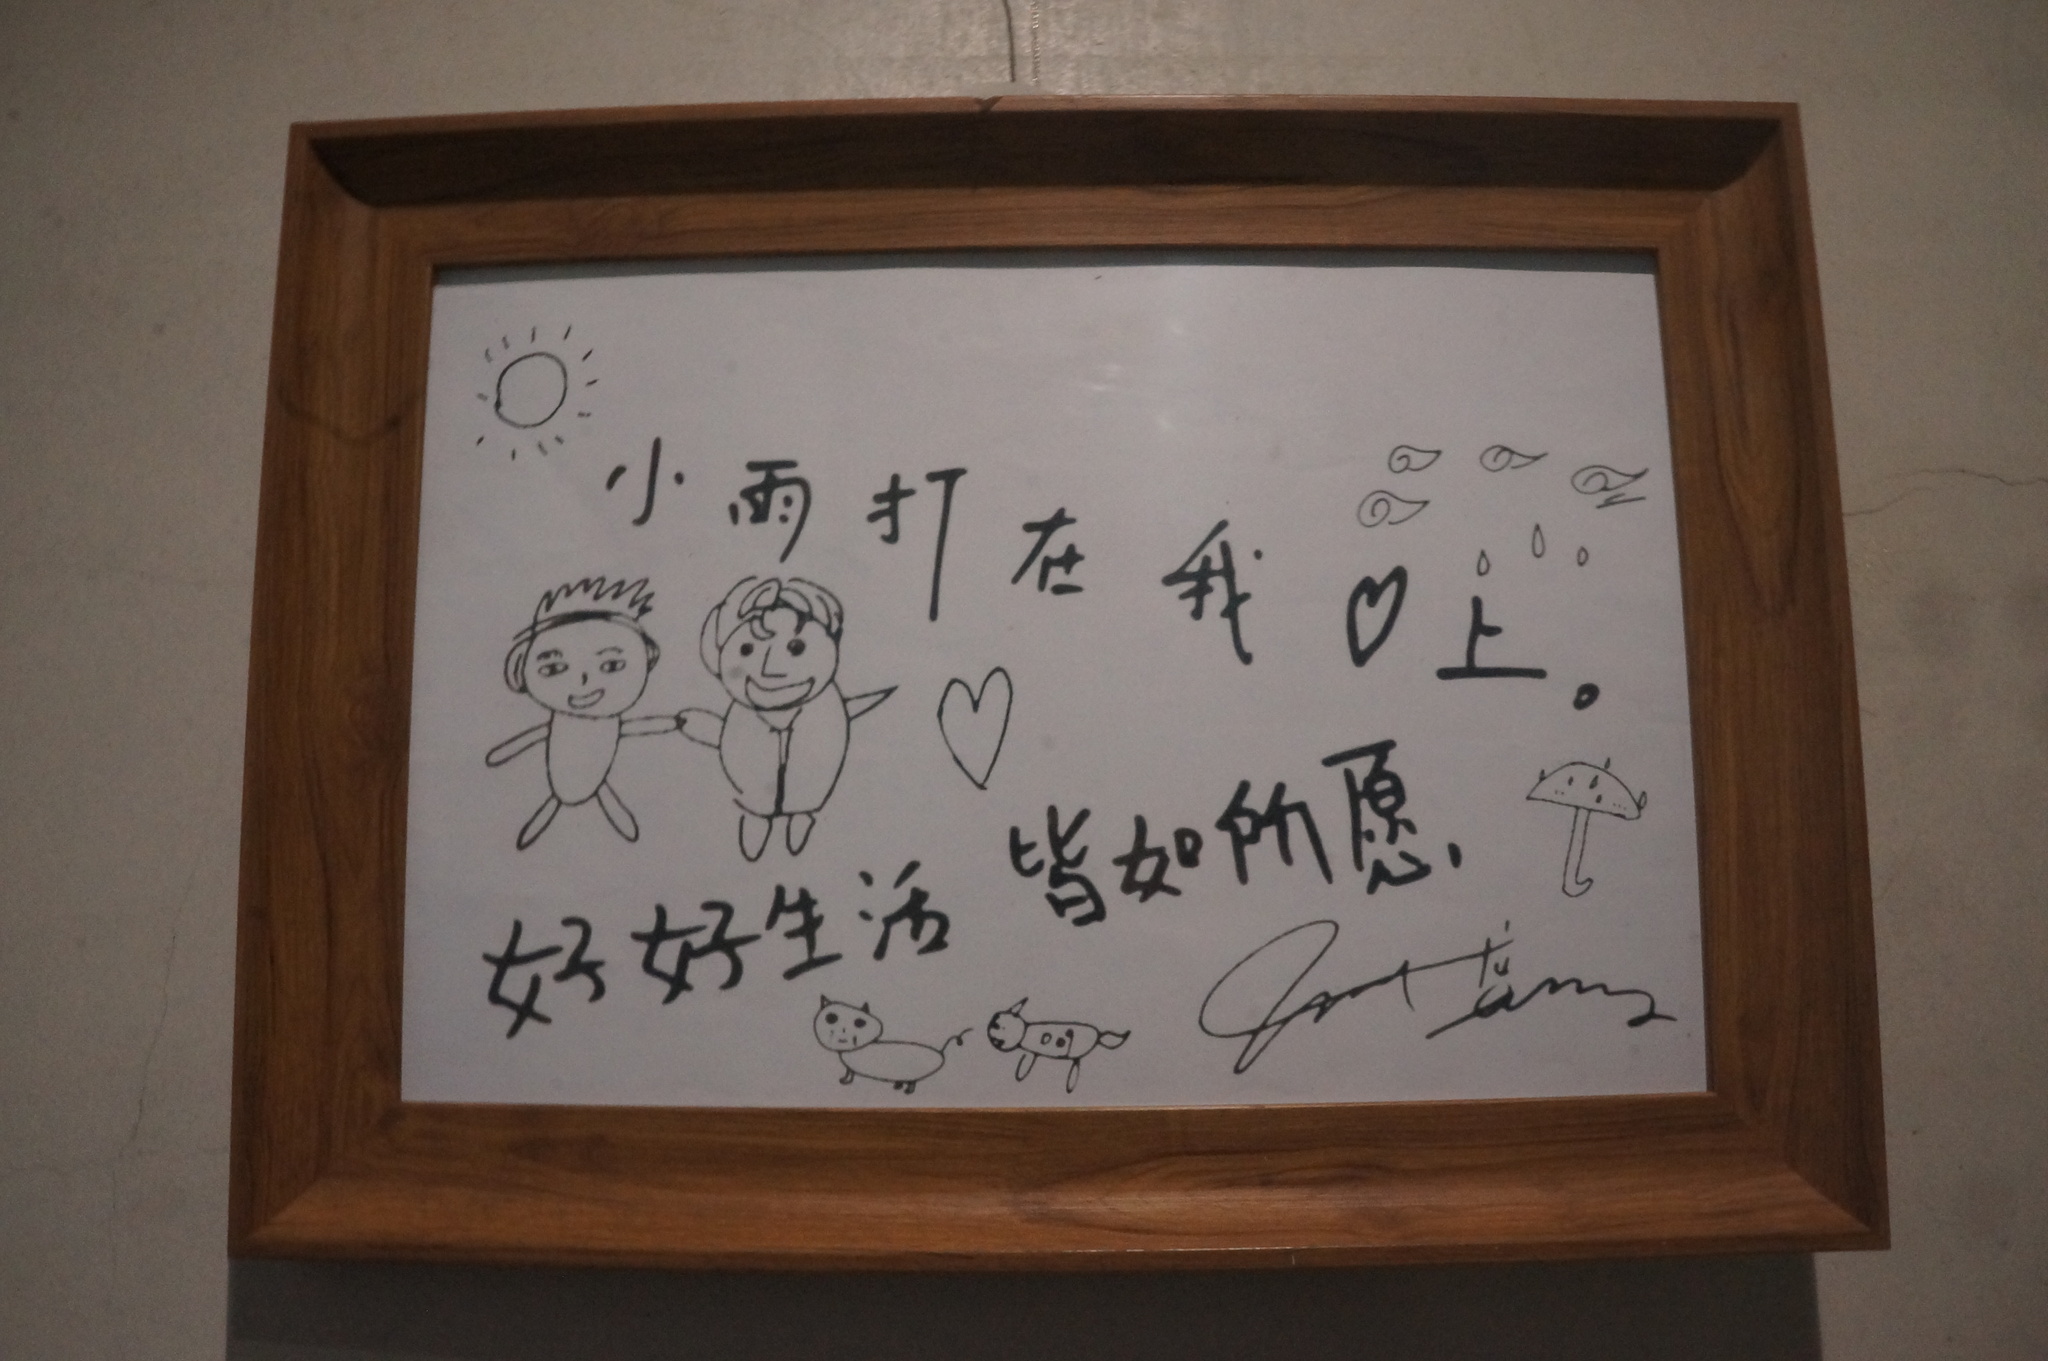 小雨打在我♡上。
好好生活 皆如所愿.